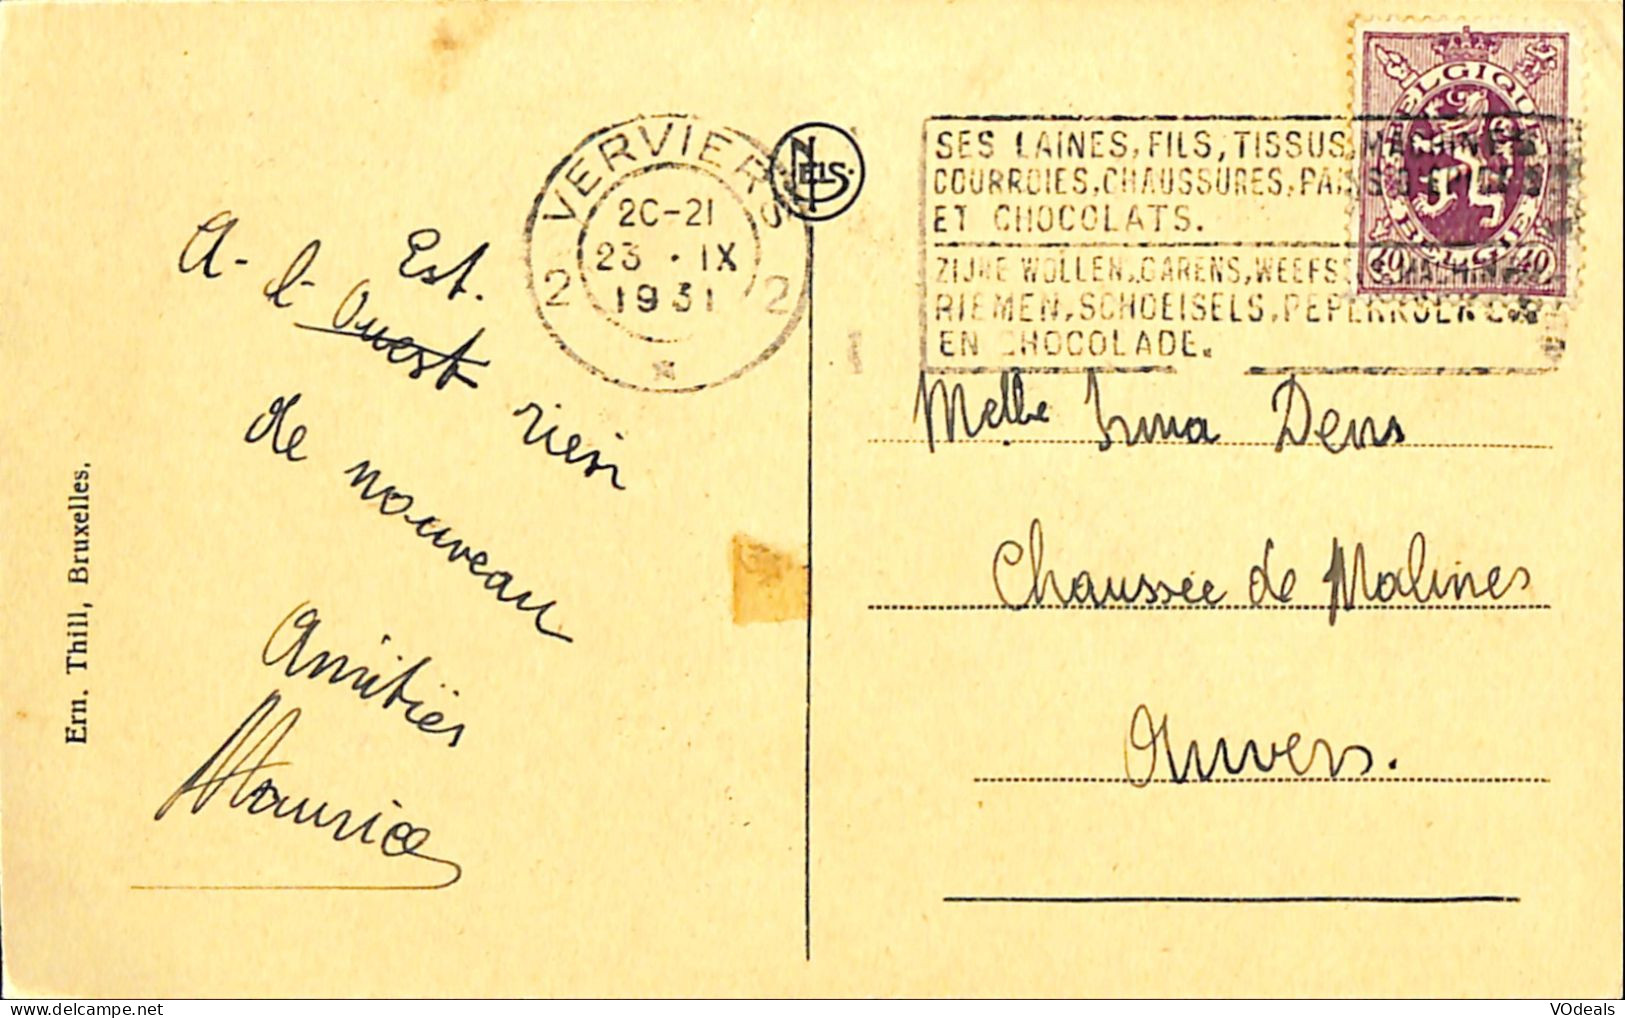 VERVIERS
20-21
23 · IX
1931
2 2
NELS.
SES LAINES, FILS, TISSUS, MACHINES
COURROIES, CHAUSSURES, PAINS D'EPICES
ET CHOCOLATS.
ZIJNE WOLLEN, GARENS, WEEFS MACHIN
RIEMEN, SCHOEISELS, PEPERKOEKEN
EN CHOCOLADE.
BELGIQUE
BELGIE
40 40
A - l - Est.
Ouest
rien
de nouveau
Amitiés
Maurice
Melle Irma Dens
Chaussée de Malines
Anvers.
Ern. Thill, Bruxelles.
VOdeals